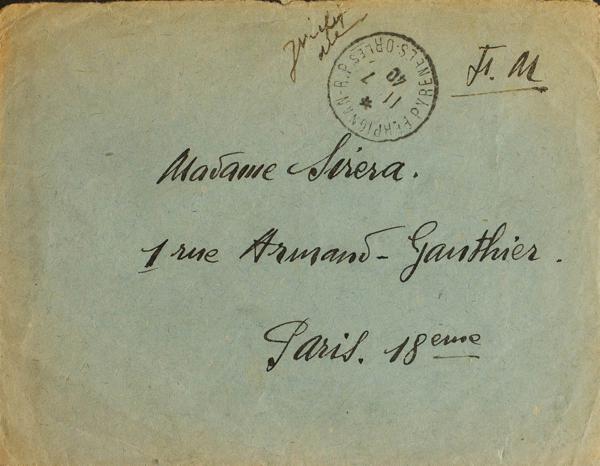 F. M
PERPIGNAN-R.P. PYRENEES-ORLES
*
11 7
40
Madame Sirera.
1 rue Armand-Gauthier.
Paris. 18eme